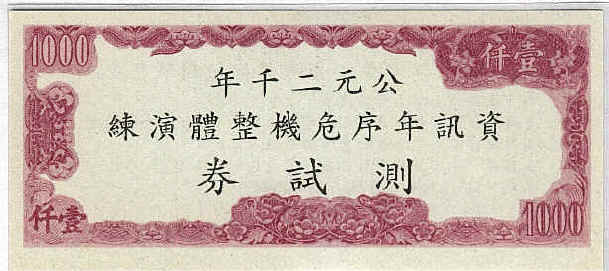 1000
壹仟
公元二千年
資訊年序危機整體演練
測試券
壹仟
1000